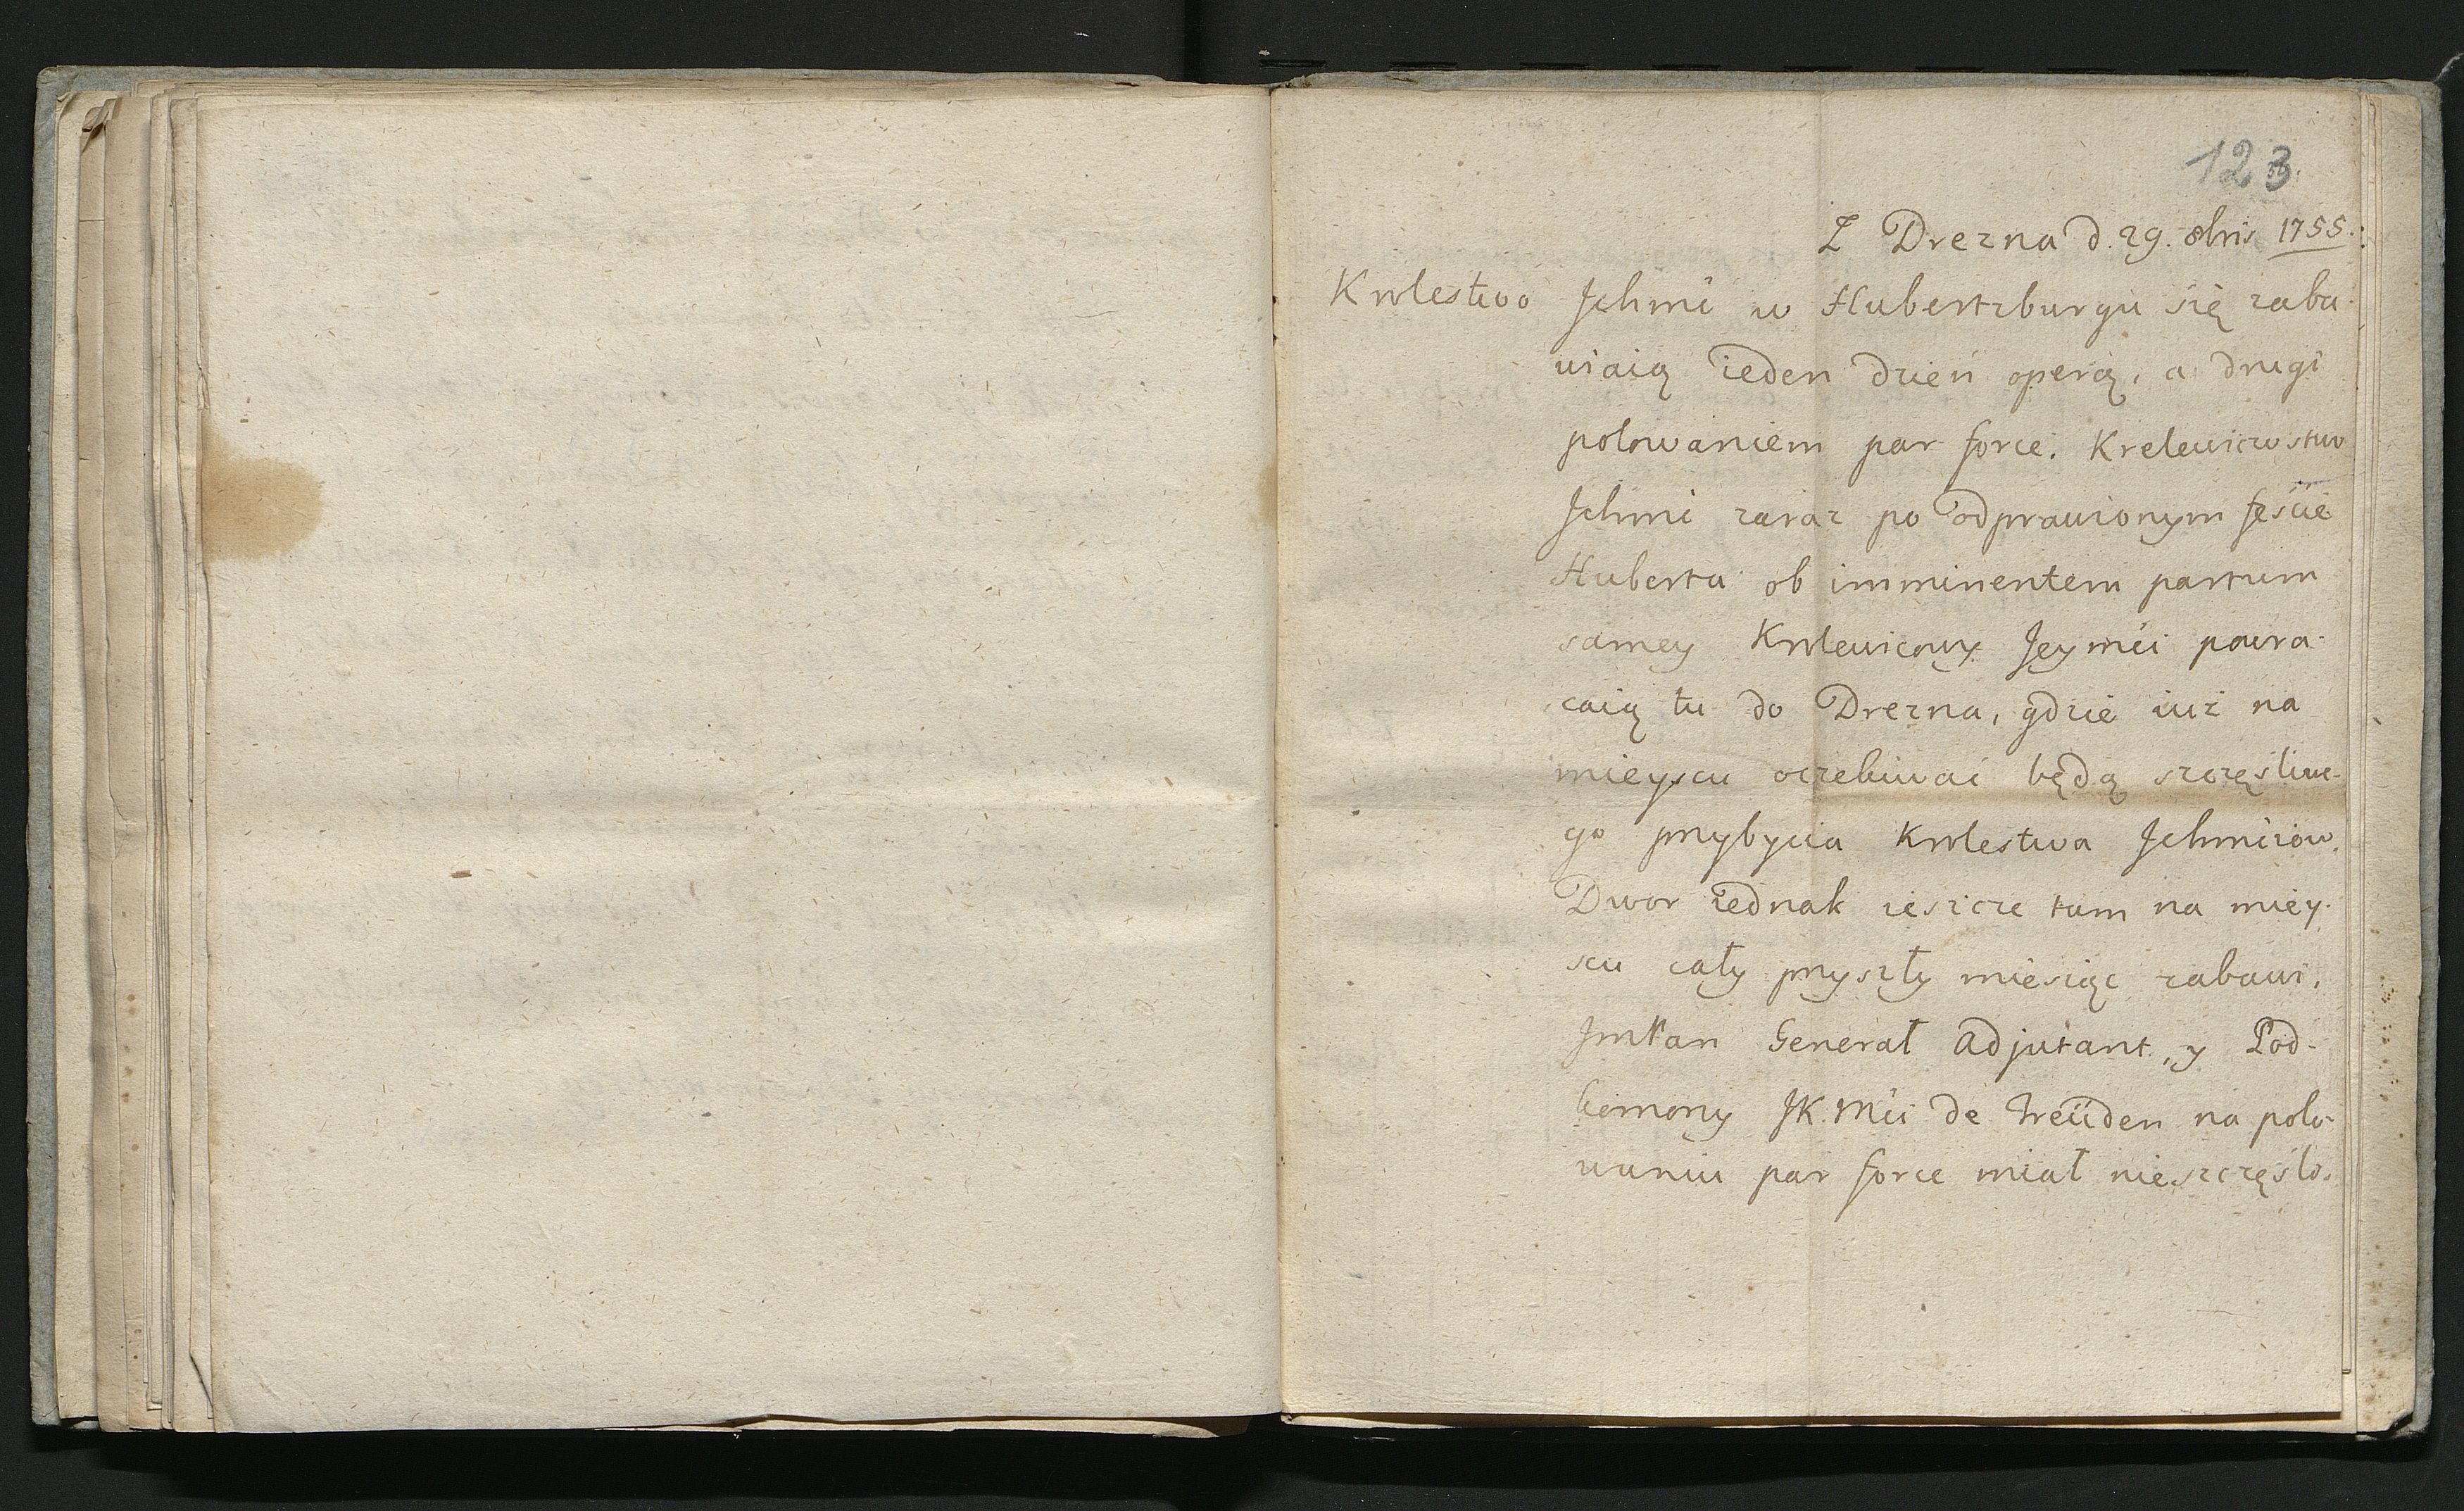 123.
Z Drezna d. 29. 8bris 1755.
Krolestwo Ichmć w Hubertzburgu się zaba-
wiaią ieden dzień operą, a drugi
polowaniem par force. Krolewicowstwo
Ichmć zaraz po odprawionym feście
Huberta ob imminentem partum
samey Krolewicowy Jeymći powra-
caią tu do Drezna, gdzie iuż na
mieyscu oczekiwać będą szczęśliwe-
go przybycia Krolestwa Ichmćiow.
Dwor iednak ieszcze tam na miey-
scu cały przyszły miesiąc zabawi.
JmPan Generał Adjutant, y Pod-
komorzy JK. Mći de Treüden na polo-
waniu par force miał nieszczęśli-